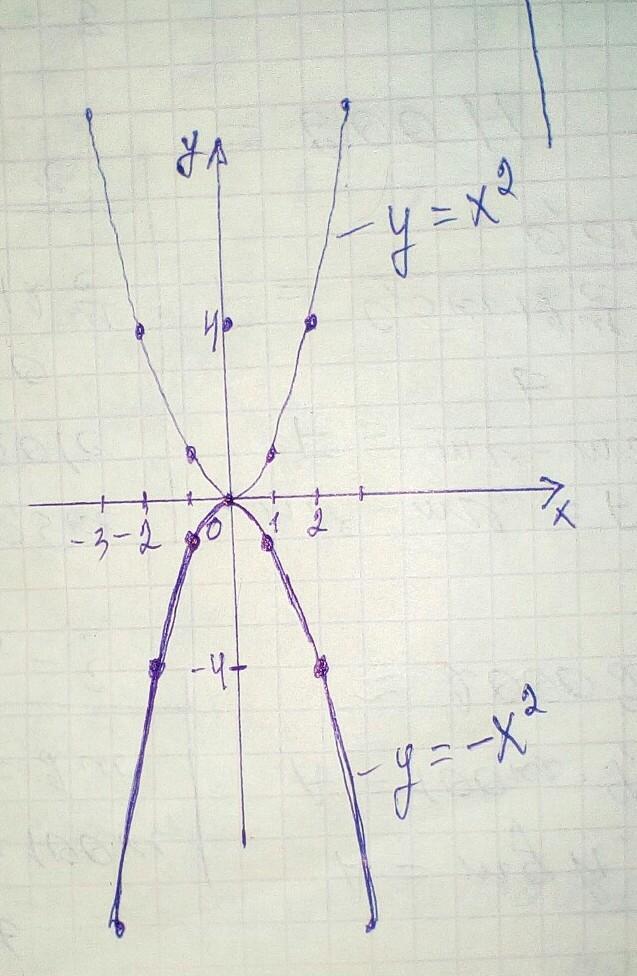 y
y = x²
4
-3 -2 0 1 2 x
-4
y = -x²